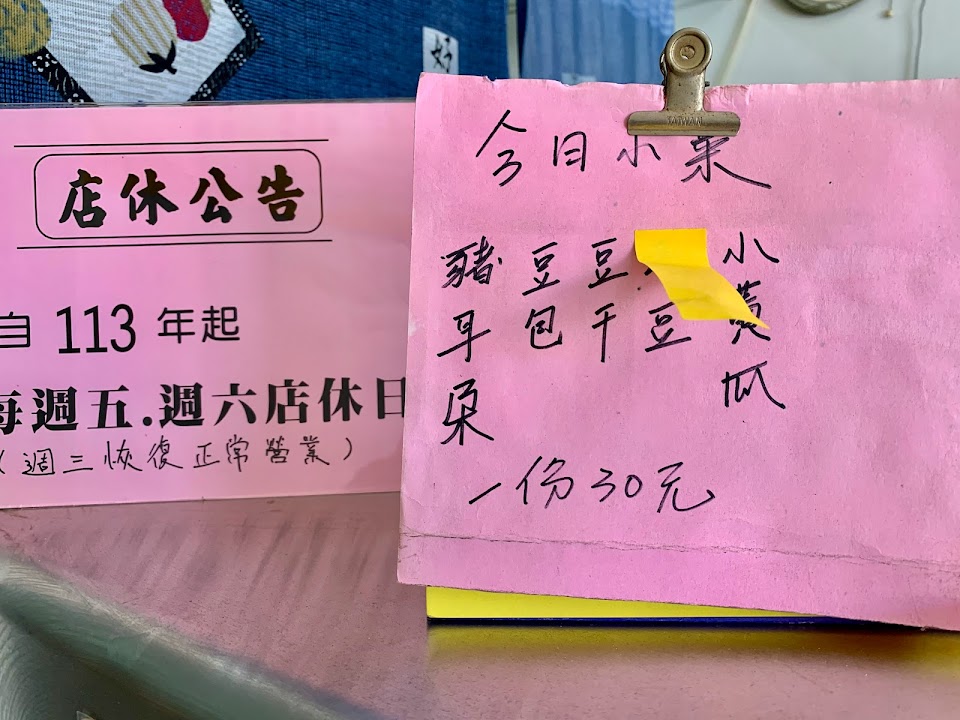 好
店休公告
自 113 年起
每週五.週六店休日
(週三恢復正常營業)
TAIWAN
今日小菜
豬耳朵
豆包
豆干
豆
小黃瓜
一份30元